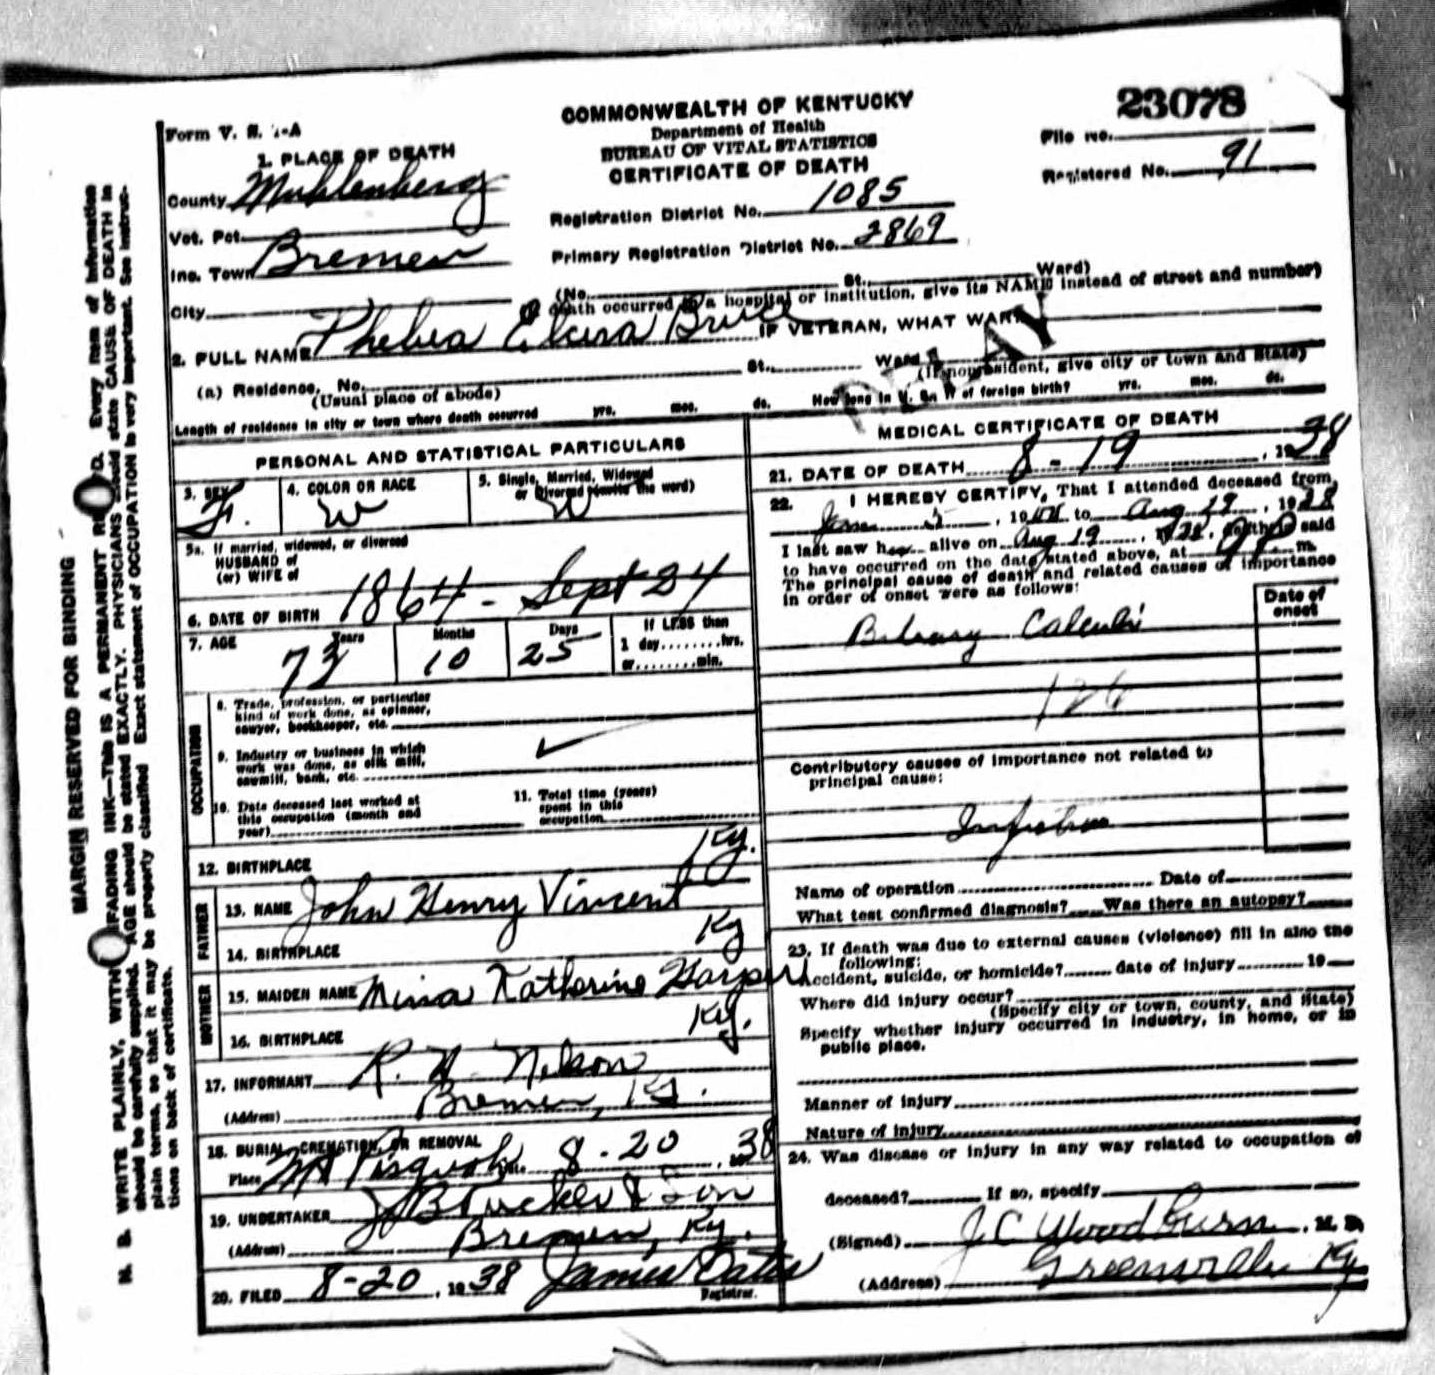 Form V. S. 1-A
COMMONWEALTH OF KENTUCKY
Department of Health
BUREAU OF VITAL STATISTICS
CERTIFICATE OF DEATH
23078
File no.
Registered No. 91
1. PLACE OF DEATH
County Muhlenberg
Vot. Pct.
Inc. Town Bremen
City
Registration District No. 1085
Primary Registration District No. 2869
(No. St. Ward)
death occurred in a hospital or institution, give its NAME instead of street and number)
2. FULL NAME Phebia Elvira Bruce IF VETERAN, WHAT WAR
DELAY
(a) Residence, No. St. Ward
(Usual place of abode) (If nonresident, give city or town and State)
Length of residence in city or town where death occurred yrs. mos. ds. How long in U. S. if of foreign birth? yrs. mos. ds.
PERSONAL AND STATISTICAL PARTICULARS
3. SEX F.
4. COLOR OR RACE W
5. Single, Married, Widowed or Divorced (write the word) W
5a. If married, widowed, or divorced
HUSBAND of
(or) WIFE of
6. DATE OF BIRTH 1864 - Sept 24
7. AGE Years 73 Months 10 Days 25 If LESS than
1 day........hrs.
or........min.
OCCUPATION
8. Trade, profession, or particular
kind of work done, as spinner,
sawyer, bookkeeper, etc.
9. Industry or business in which
work was done, as silk mill,
sawmill, bank, etc.
10. Date deceased last worked at
this occupation (month and
year)
11. Total time (years)
spent in this
occupation
12. BIRTHPLACE Ky.
FATHER
13. NAME John Henry Vincent
14. BIRTHPLACE Ky
MOTHER
15. MAIDEN NAME Katherine Harper
16. BIRTHPLACE Ky.
17. INFORMANT R. Nelson
(Address) Bremen, Ky.
18. BURIAL, CREMATION, OR REMOVAL
Place Mt Pisguah Date 8-20, 1938
19. UNDERTAKER J B Tucker & Son
(Address) Bremen, Ky.
20. FILED 8-20, 1938 James Oates
Registrar.
MEDICAL CERTIFICATE OF DEATH
21. DATE OF DEATH 8-19, 1938
22. I HEREBY CERTIFY, That I attended deceased from
to Aug 19, 1938
I last saw her alive on Aug 19, death is said
to have occurred on the date stated above, at m.
The principal cause of death and related causes of importance
in order of onset were as follows:
Date of
onset
Biliary Calculi
126
Contributory causes of importance not related to
principal cause:
Infection
Name of operation Date of
What test confirmed diagnosis? Was there an autopsy?
23. If death was due to external causes (violence) fill in also the
following:
Accident, suicide, or homicide? date of injury 19
Where did injury occur?
(Specify city or town, county, and State)
Specify whether injury occurred in industry, in home, or in
public place.
Manner of injury
Nature of injury
24. Was disease or injury in any way related to occupation of
deceased? If so, specify
(Signed) J C Woodburn, M. D.
(Address) Greenville Ky
MARGIN RESERVED FOR BINDING
N. B. WRITE PLAINLY, WITH UNFADING INK—This IS A PERMANENT RECORD. Every item of information
should be carefully supplied. AGE should be stated EXACTLY. PHYSICIANS should state CAUSE OF DEATH in
plain terms, so that it may be properly classified. Exact statement of OCCUPATION is very important. See instruc-
tions on back of certificate.